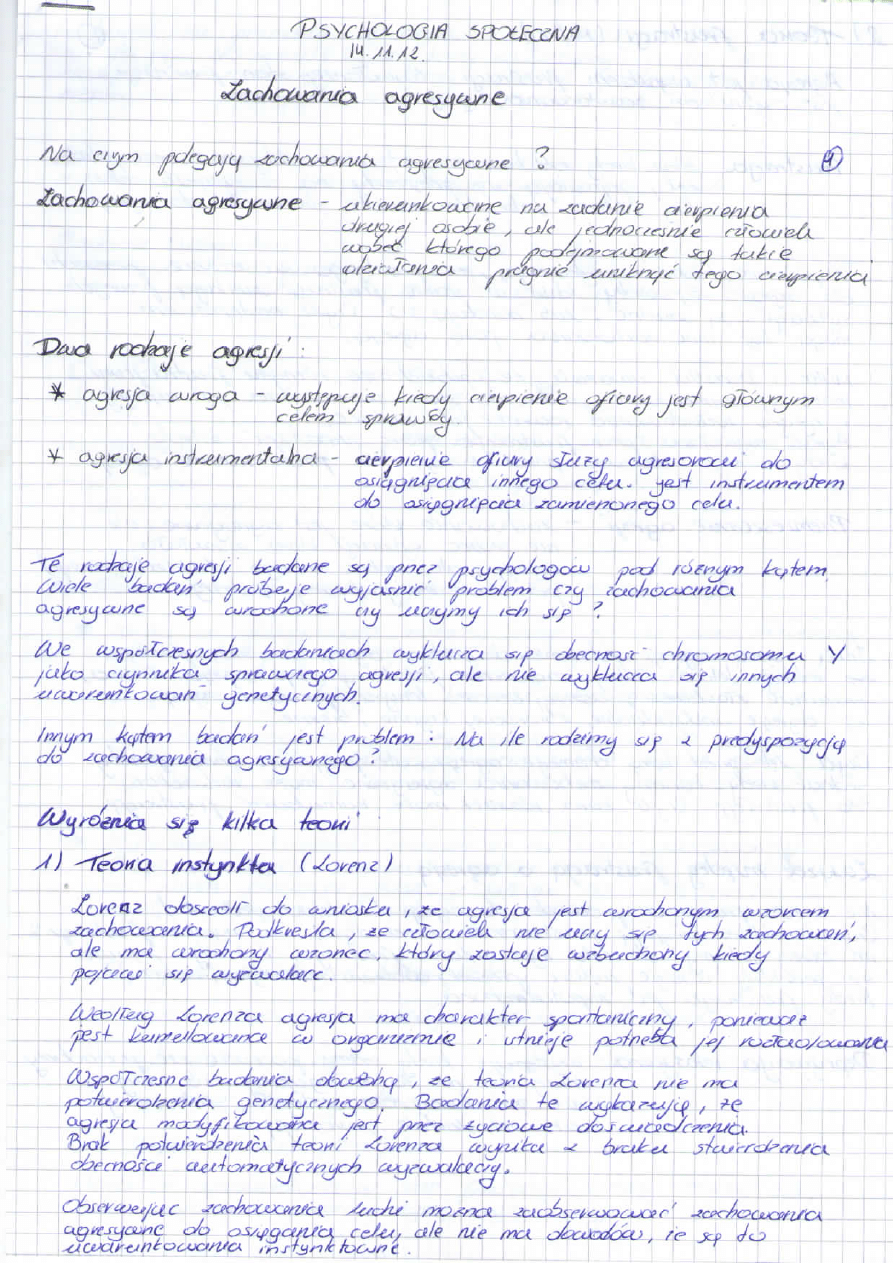 PSYCHOLOGIA SPOŁECZNA
14.11.12.
Zachowania agresywne
Na czym polegają zachowania agresywne ?
Zachowania agresywne - ukierunkowane na zadanie cierpienia
drugiej osobie, ale jednocześnie człowiek
wobec którego podejmowane są takie
działania pragnie uniknąć tego cierpienia
Dwa rodzaje agresji :
* agresja wroga - występuje kiedy cierpienie ofiary jest głównym
celem sprawcy.
* agresja instrumentalna - cierpienie ofiary służy agresorowi do
osiągnięcia innego celu. jest instrumentem
do osiągnięcia zamierzonego celu.
Te rodzaje agresji badane są przez psychologów pod różnym kątem.
Wiele badań próbuje wyjaśnić problem czy zachowania
agresywne są wrodzone czy uczymy ich się ?
We współczesnych badaniach wyklucza się obecność chromosomu Y
jako czynnika sprawczego agresji, ale nie wyklucza się innych
uwarunkowań genetycznych.
Innym kątem badań jest problem : Na ile rodzimy się z predyspozycją
do zachowania agresywnego ?
Wyróżnia się kilka teorii
1) Teoria instynktu (Lorenz)
Lorenz doszedł do wniosku, że agresja jest wrodzonym wzorcem
zachowania. Podkreśla, że człowiek nie uczy się tych zachowań,
ale ma wrodzony wzorzec, który zostaje wzbudzony kiedy
pojawi się wyzwalacz.
Według Lorenza agresja ma charakter spontaniczny, ponieważ
jest kumulowana w organizmie i istnieje potrzeba jej rozładowania
Współczesne badania dowodzą, że teoria Lorenza nie ma
potwierdzenia genetycznego. Badania te wykazują, że
agresja modyfikowana jest przez życiowe doświadczenia.
Brak potwierdzenia teorii Lorenza wynika z braku stwierdzenia
obecności automatycznych wyzwalaczy.
Obserwując zachowania ludzi można zaobserwować zachowania
agresywne do osiągania celu, ale nie ma dowodów, że są to
uwarunkowania instynktowne.